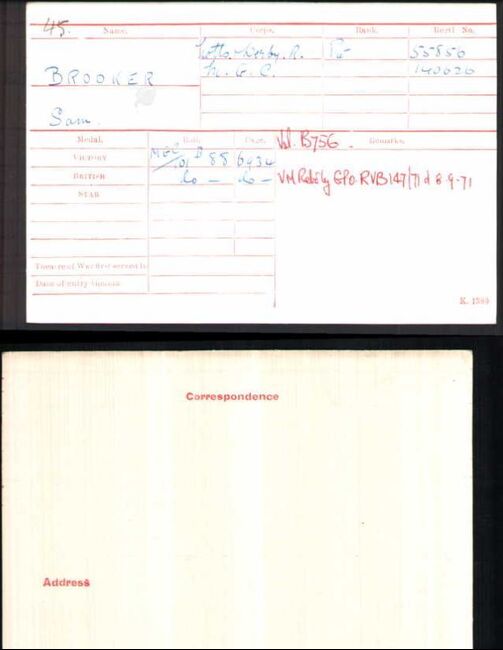 45.
Name. Corps. Rank. Regtl. No.
Notts & Derby. R. Pte 55856
BROOKER M. G. C. 140626
Sam.
Medal. Roll. Page. Remarks.
Vol. B756.
VICTORY MGC/101 B 88 6434
BRITISH do — do —
VM Retd by GPO. RVB 147/71 d 8-9-71
STAR
Theatre of War first served in
Date of entry therein
K. 1380
Correspondence
Address